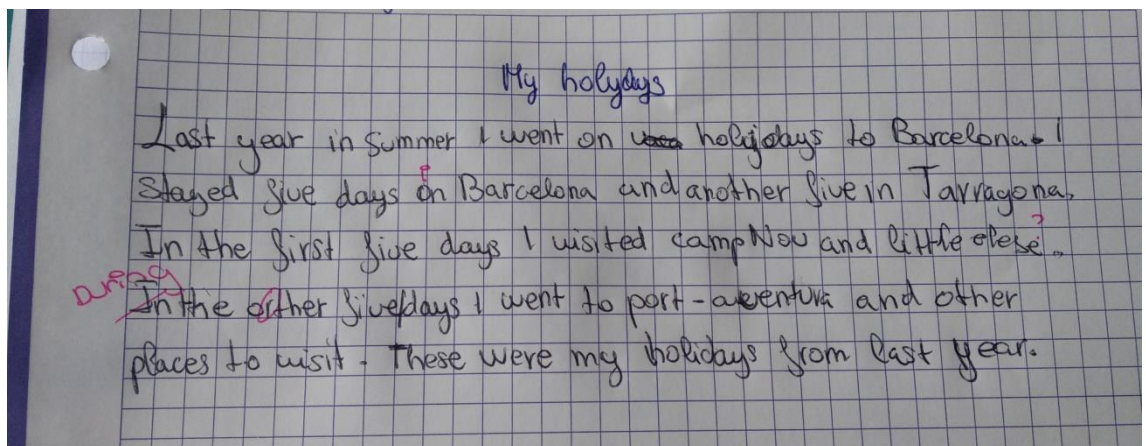 My holydays
Last year in summer I went on holydays to Barcelona. I
stayed five days in Barcelona and another five in Tarragona.
In the first five days I visited camp Nou and little else ?
During
In the other five days I went to port-aventura and other
places to visit. These were my holidays from last year.